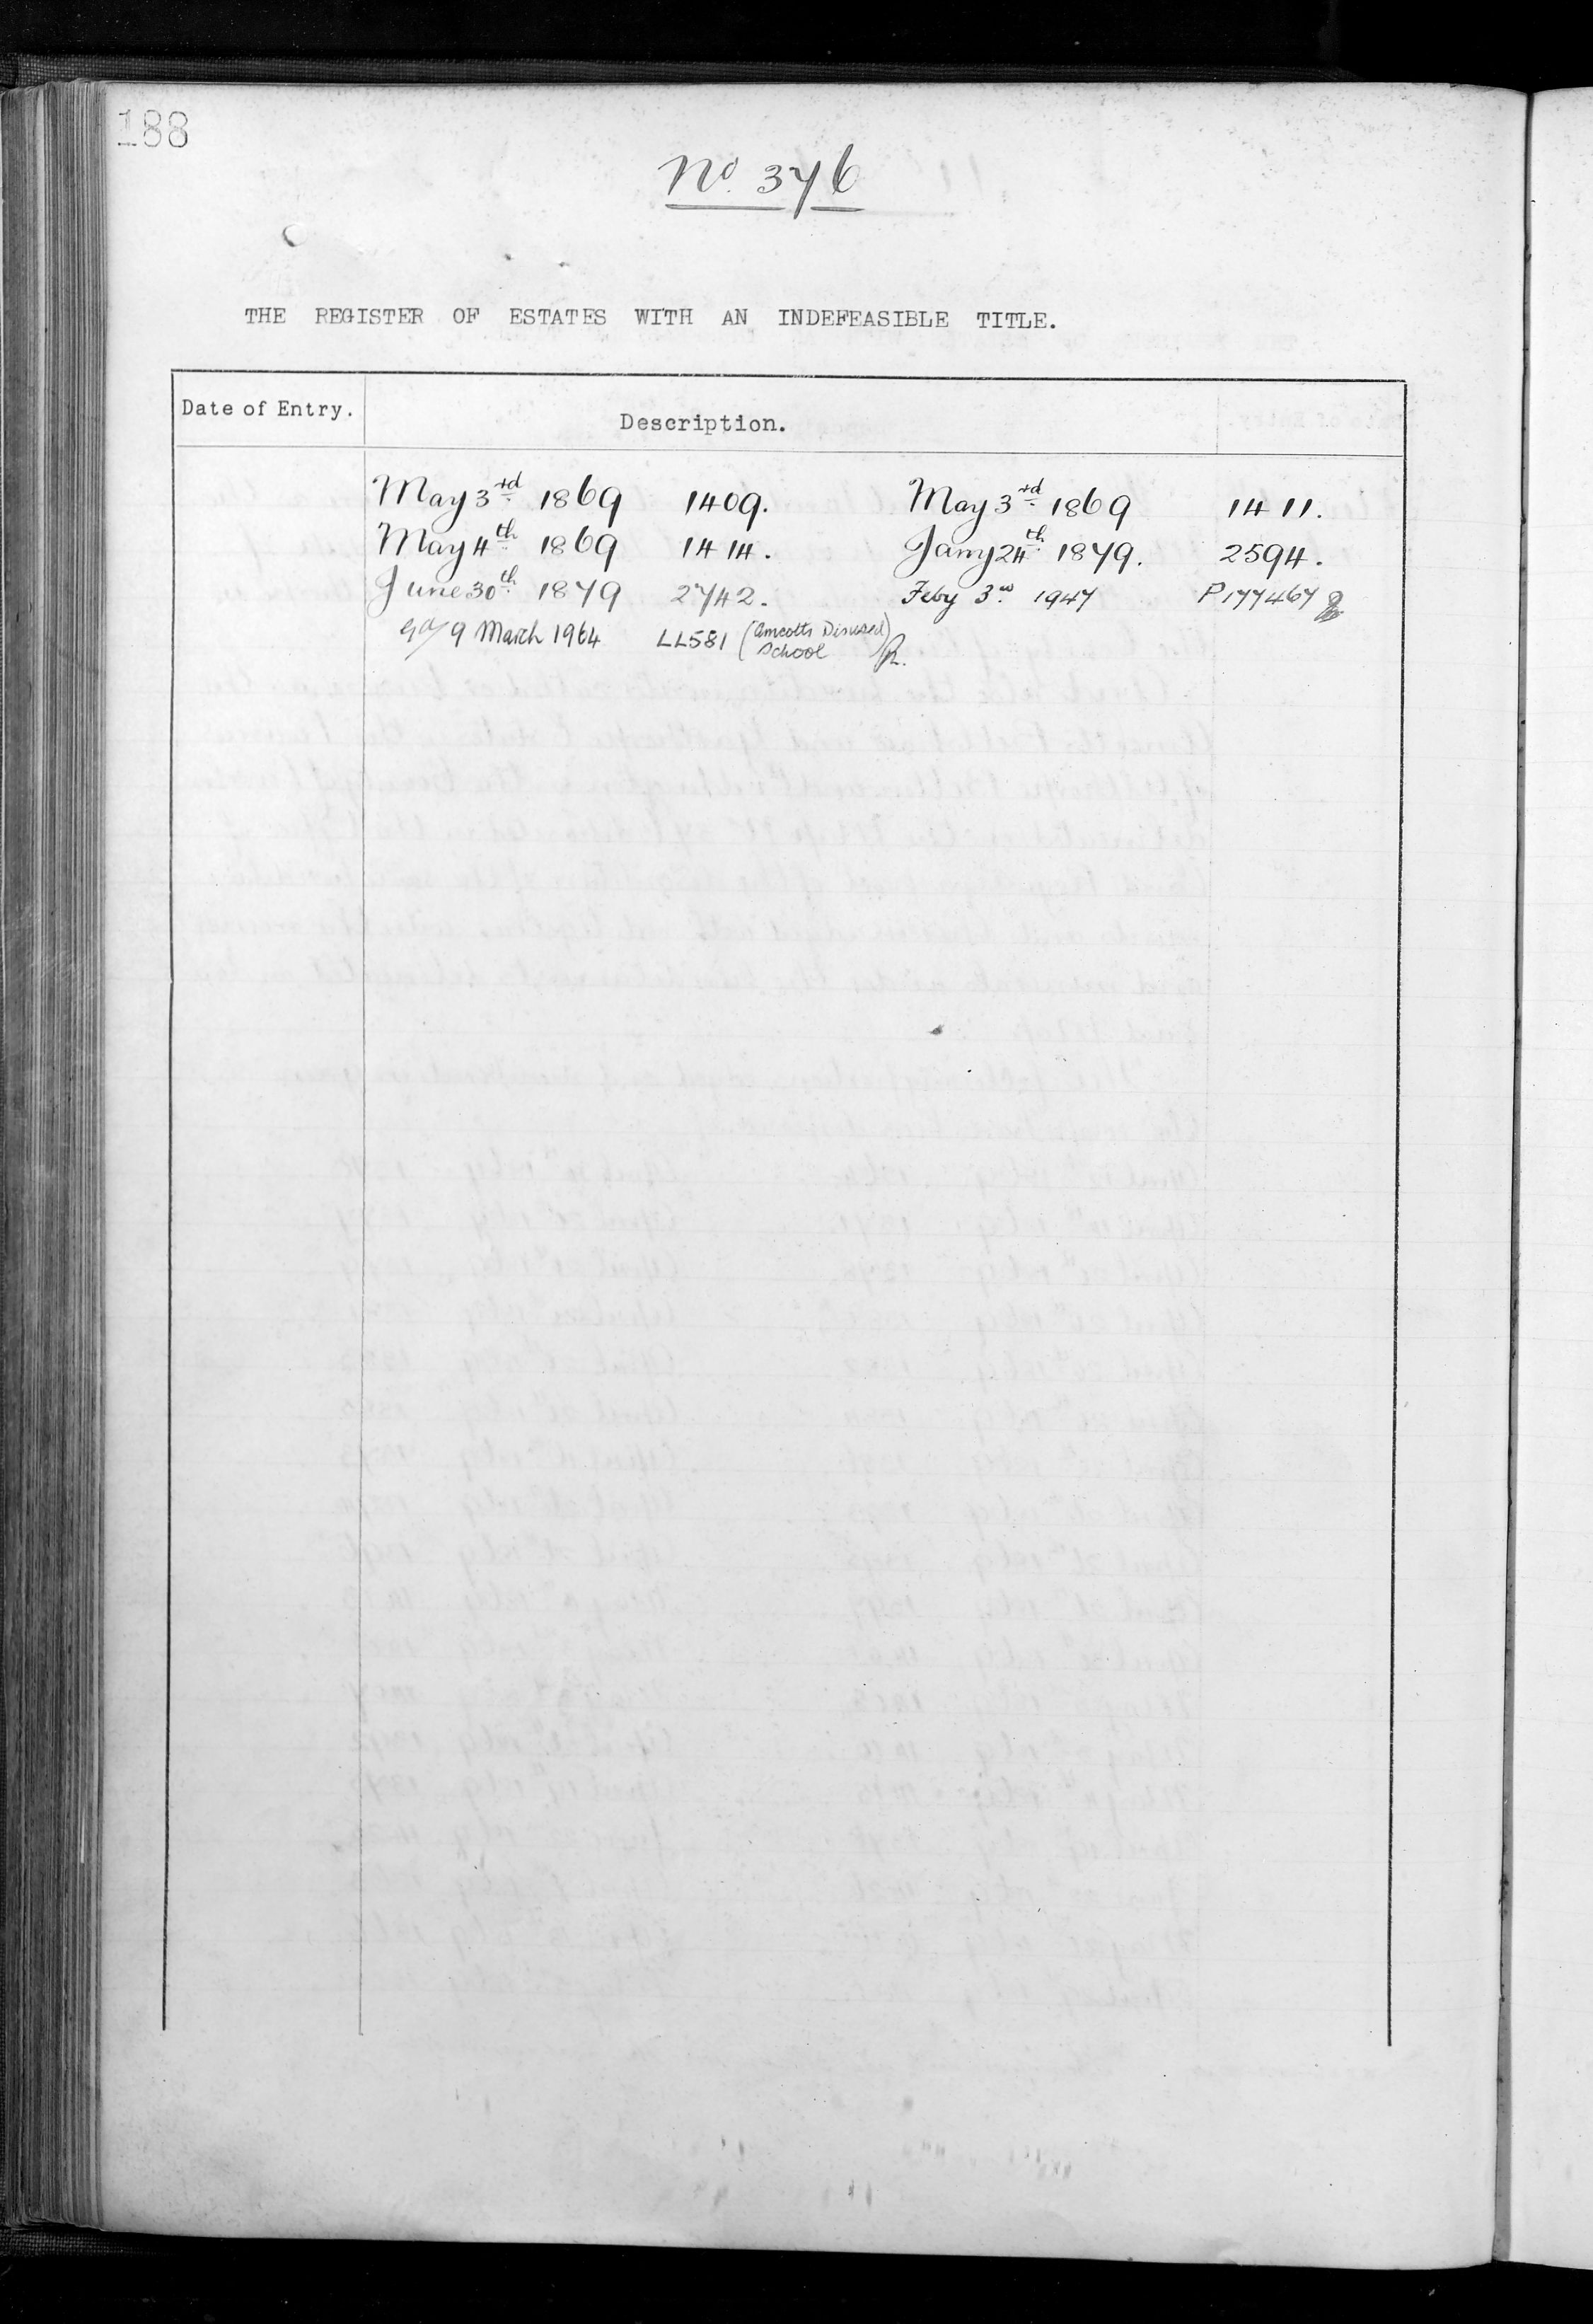 188
No. 376
THE REGISTER OF ESTATES WITH AN INDEFEASIBLE TITLE.
Date of Entry. Description.
May 3rd 1869 1409. May 3rd 1869 1411.
May 4th 1869 1414. Jany 24th 1879. 2594.
June 30th 1879 2742. Feby 3rd 1947 P177467
9 March 1964 LL581 (Amcotts Disused School)